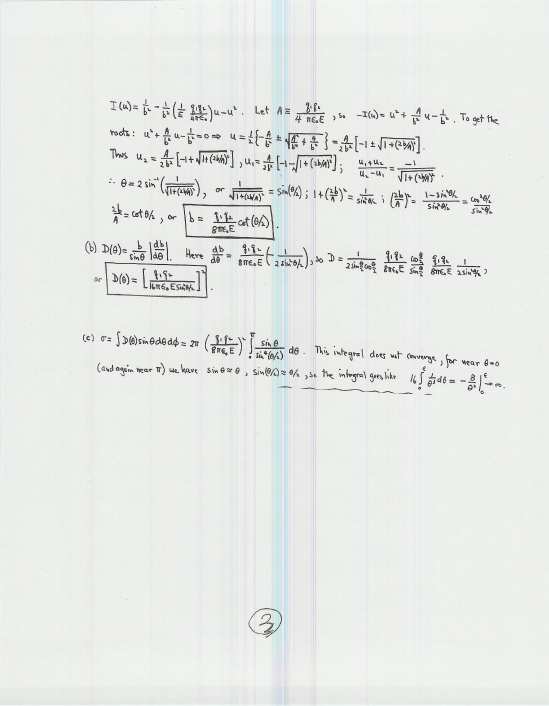 I(u) = 1/b² − 1/b² (1/E q₁q₂/4πε₀) u − u². Let A ≡ q₁q₂/4πε₀E, so −I(u) = u² + A/b² u − 1/b². To get the
roots: u² + A/b² u − 1/b² = 0 ⇒ u = 1/2 {−A/b² ± √(A²/b⁴ + 4/b²)} = A/2b² [−1 ± √(1+(2b/A)²)].
Thus u₂ = A/2b² [−1 + √(1+(2b/A)²)], u₁ = A/2b² [−1 − √(1+(2b/A)²)]; (u₁+u₂)/(u₂−u₁) = −1/√(1+(2b/A)²).
∴ θ = 2 sin⁻¹(1/√(1+(2b/A)²)), or 1/√(1+(2b/A)²) = sin(θ/2); 1+(2b/A)² = 1/sin²θ/2; (2b/A)² = (1−sin²θ/2)/sin²θ/2 = cos²θ/2/sin²θ/2
2b/A = cot θ/2, or b = q₁q₂/8πε₀E cot(θ/2).
(b) D(θ) = b/sinθ |db/dθ|. Here db/dθ = q₁q₂/8πε₀E (−1/2sin²θ/2), so D = 1/(2 sin θ/2 cos θ/2) q₁q₂/8πε₀E cos θ/2/sin θ/2 q₁q₂/8πε₀E 1/2sin²θ/2,
or D(θ) = [q₁q₂/16πε₀E sin²θ/2]².
(c) σ = ∫ D(θ) sinθ dθ dφ = 2π (q₁q₂/8πε₀E)² ∫₀^π sinθ/sin⁴(θ/2) dθ. This integral does not converge, for near θ=0
(and again near π) we have sin θ ≈ θ, sin(θ/2) ≈ θ/2, so the integral goes like 16 ∫₀^ε 1/θ³ dθ = −8/θ² |₀^ε → ∞.
3